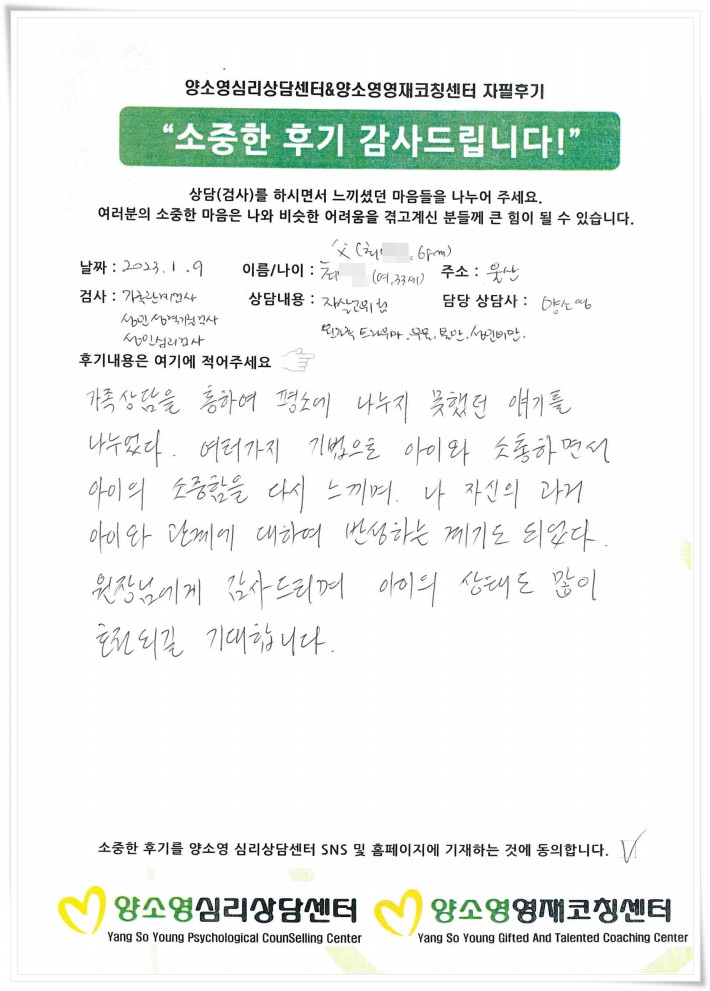 양소영심리상담센터&양소영영재코칭센터 자필후기
“소중한 후기 감사드립니다!”
상담(검사)를 하시면서 느끼셨던 마음들을 나누어 주세요.
여러분의 소중한 마음은 나와 비슷한 어려움을 겪고계신 분들께 큰 힘이 될 수 있습니다.
父(최
날짜 : 2023. 1. 9 이름/나이 : 최 (여, 33세) 주소 : 울산
검사 : 가족관계검사 상담내용 : 자살고위험 담당 상담사 : 양소영
성인성격기질검사 트라우마, 우울, 불안,
성인심리검사
후기내용은 여기에 적어주세요
가족상담을 통하여 평소에 나누지 못했던 얘기를
나누었다. 여러가지 기법으로 아이와 소통하면서
아이의 소중함을 다시 느끼며, 나 자신의 과거
아이와 관계에 대하여 반성하는 계기도 되었다.
원장님에게 감사드리며 아이의 상태도 많이
호전되길 기대합니다.
소중한 후기를 양소영 심리상담센터 SNS 및 홈페이지에 기재하는 것에 동의합니다. V
양소영심리상담센터 양소영영재코칭센터
Yang So Young Psychological CounSelling Center Yang So Young Gifted And Talented Coaching Center